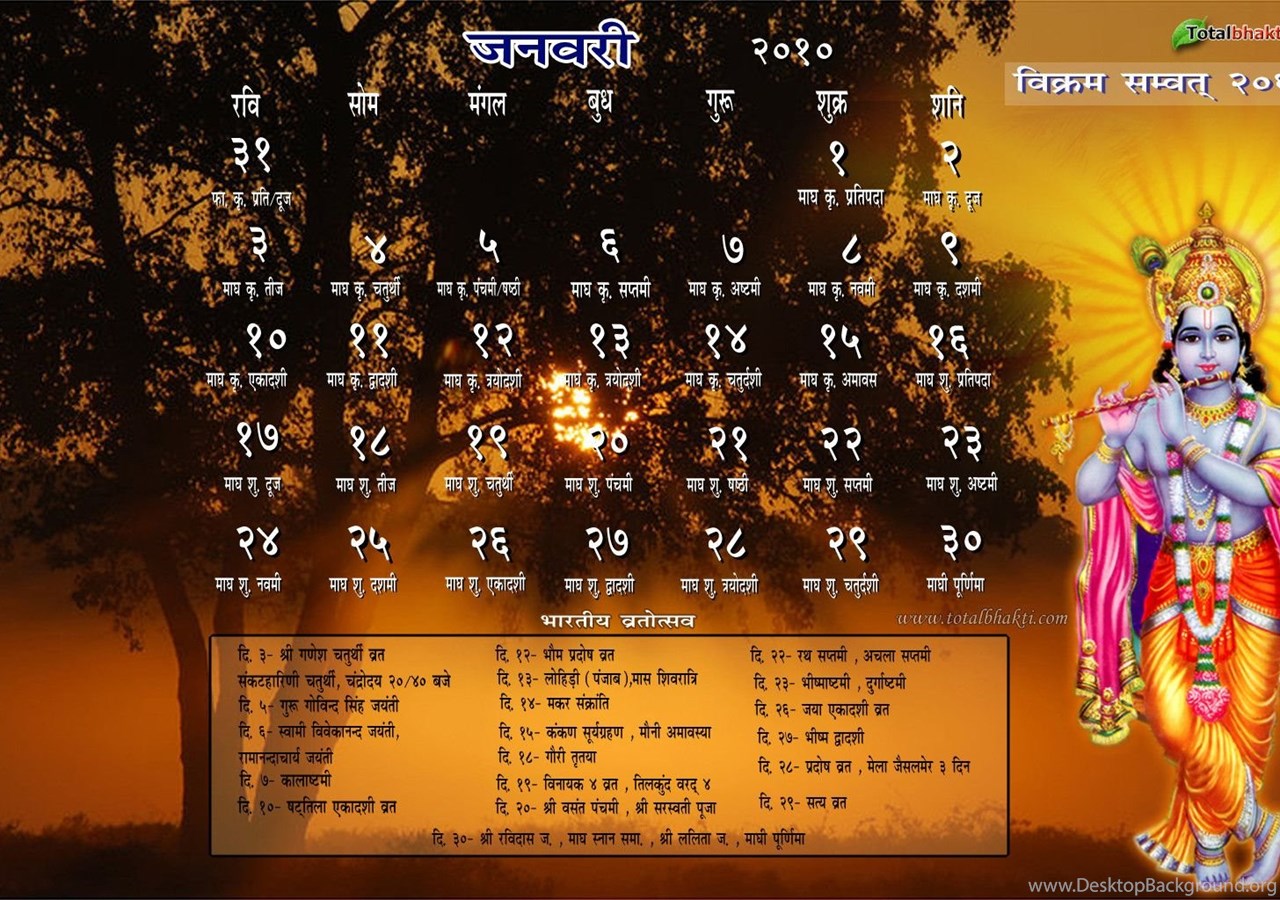 जनवरी २०१०
Totalbhakti
विक्रम सम्वत् २०
रवि सोम मंगल बुध गुरू शुक्र शनि
३१ १ २
फा. कृ. प्रति/दूज माघ कृ. प्रतिपदा माघ कृ. दूज
३ ४ ५ ६ ७ ८ ९
माघ कृ. तीज माघ कृ. चतुर्थी माघ कृ. पंचमी/षष्ठी माघ कृ. सप्तमी माघ कृ. अष्टमी माघ कृ. नवमी माघ कृ. दशमी
१० ११ १२ १३ १४ १५ १६
माघ कृ. एकादशी माघ कृ. द्वादशी माघ कृ. त्रयोदशी माघ कृ. त्रयोदशी माघ कृ. चतुर्दशी माघ कृ. अमावस माघ शु. प्रतिपदा
१७ १८ १९ २० २१ २२ २३
माघ शु. दूज माघ शु. तीज माघ शु. चतुर्थी माघ शु. पंचमी माघ शु. षष्ठी माघ शु. सप्तमी माघ शु. अष्टमी
२४ २५ २६ २७ २८ २९ ३०
माघ शु. नवमी माघ शु. दशमी माघ शु. एकादशी माघ शु. द्वादशी माघ शु. त्रयोदशी माघ शु. चतुर्दशी माघी पूर्णिमा
भारतीय व्रतोत्सव
www.totalbhakti.com
दि. ३- श्री गणेश चतुर्थी व्रत
संकटहारिणी चतुर्थी, चंद्रोदय २०/४० बजे
दि. ५- गुरू गोविन्द सिंह जयंती
दि. ६- स्वामी विवेकानन्द जयंती,
रामानन्दाचार्य जयंती
दि. ७- कालाष्टमी
दि. १०- षट्तिला एकादशी व्रत
दि. १२- भौम प्रदोष व्रत
दि. १३- लोहिड़ी ( पंजाब ),मास शिवरात्रि
दि. १४- मकर संक्रांति
दि. १५- कंकण सूर्यग्रहण , मौनी अमावस्या
दि. १८- गौरी तृतया
दि. १९- विनायक ४ व्रत , तिलकुंद वरद् ४
दि. २०- श्री वसंत पंचमी , श्री सरस्वती पूजा
दि. २२- रथ सप्तमी , अचला सप्तमी
दि. २३- भीष्माष्टमी , दुर्गाष्टमी
दि. २६- जया एकादशी व्रत
दि. २७- भीष्म द्वादशी
दि. २८- प्रदोष व्रत , मेला जैसलमेर ३ दिन
दि. २९- सत्य व्रत
दि. ३०- श्री रविदास ज. , माघ स्नान समा. , श्री ललिता ज. , माघी पूर्णिमा
www.DesktopBackground.org